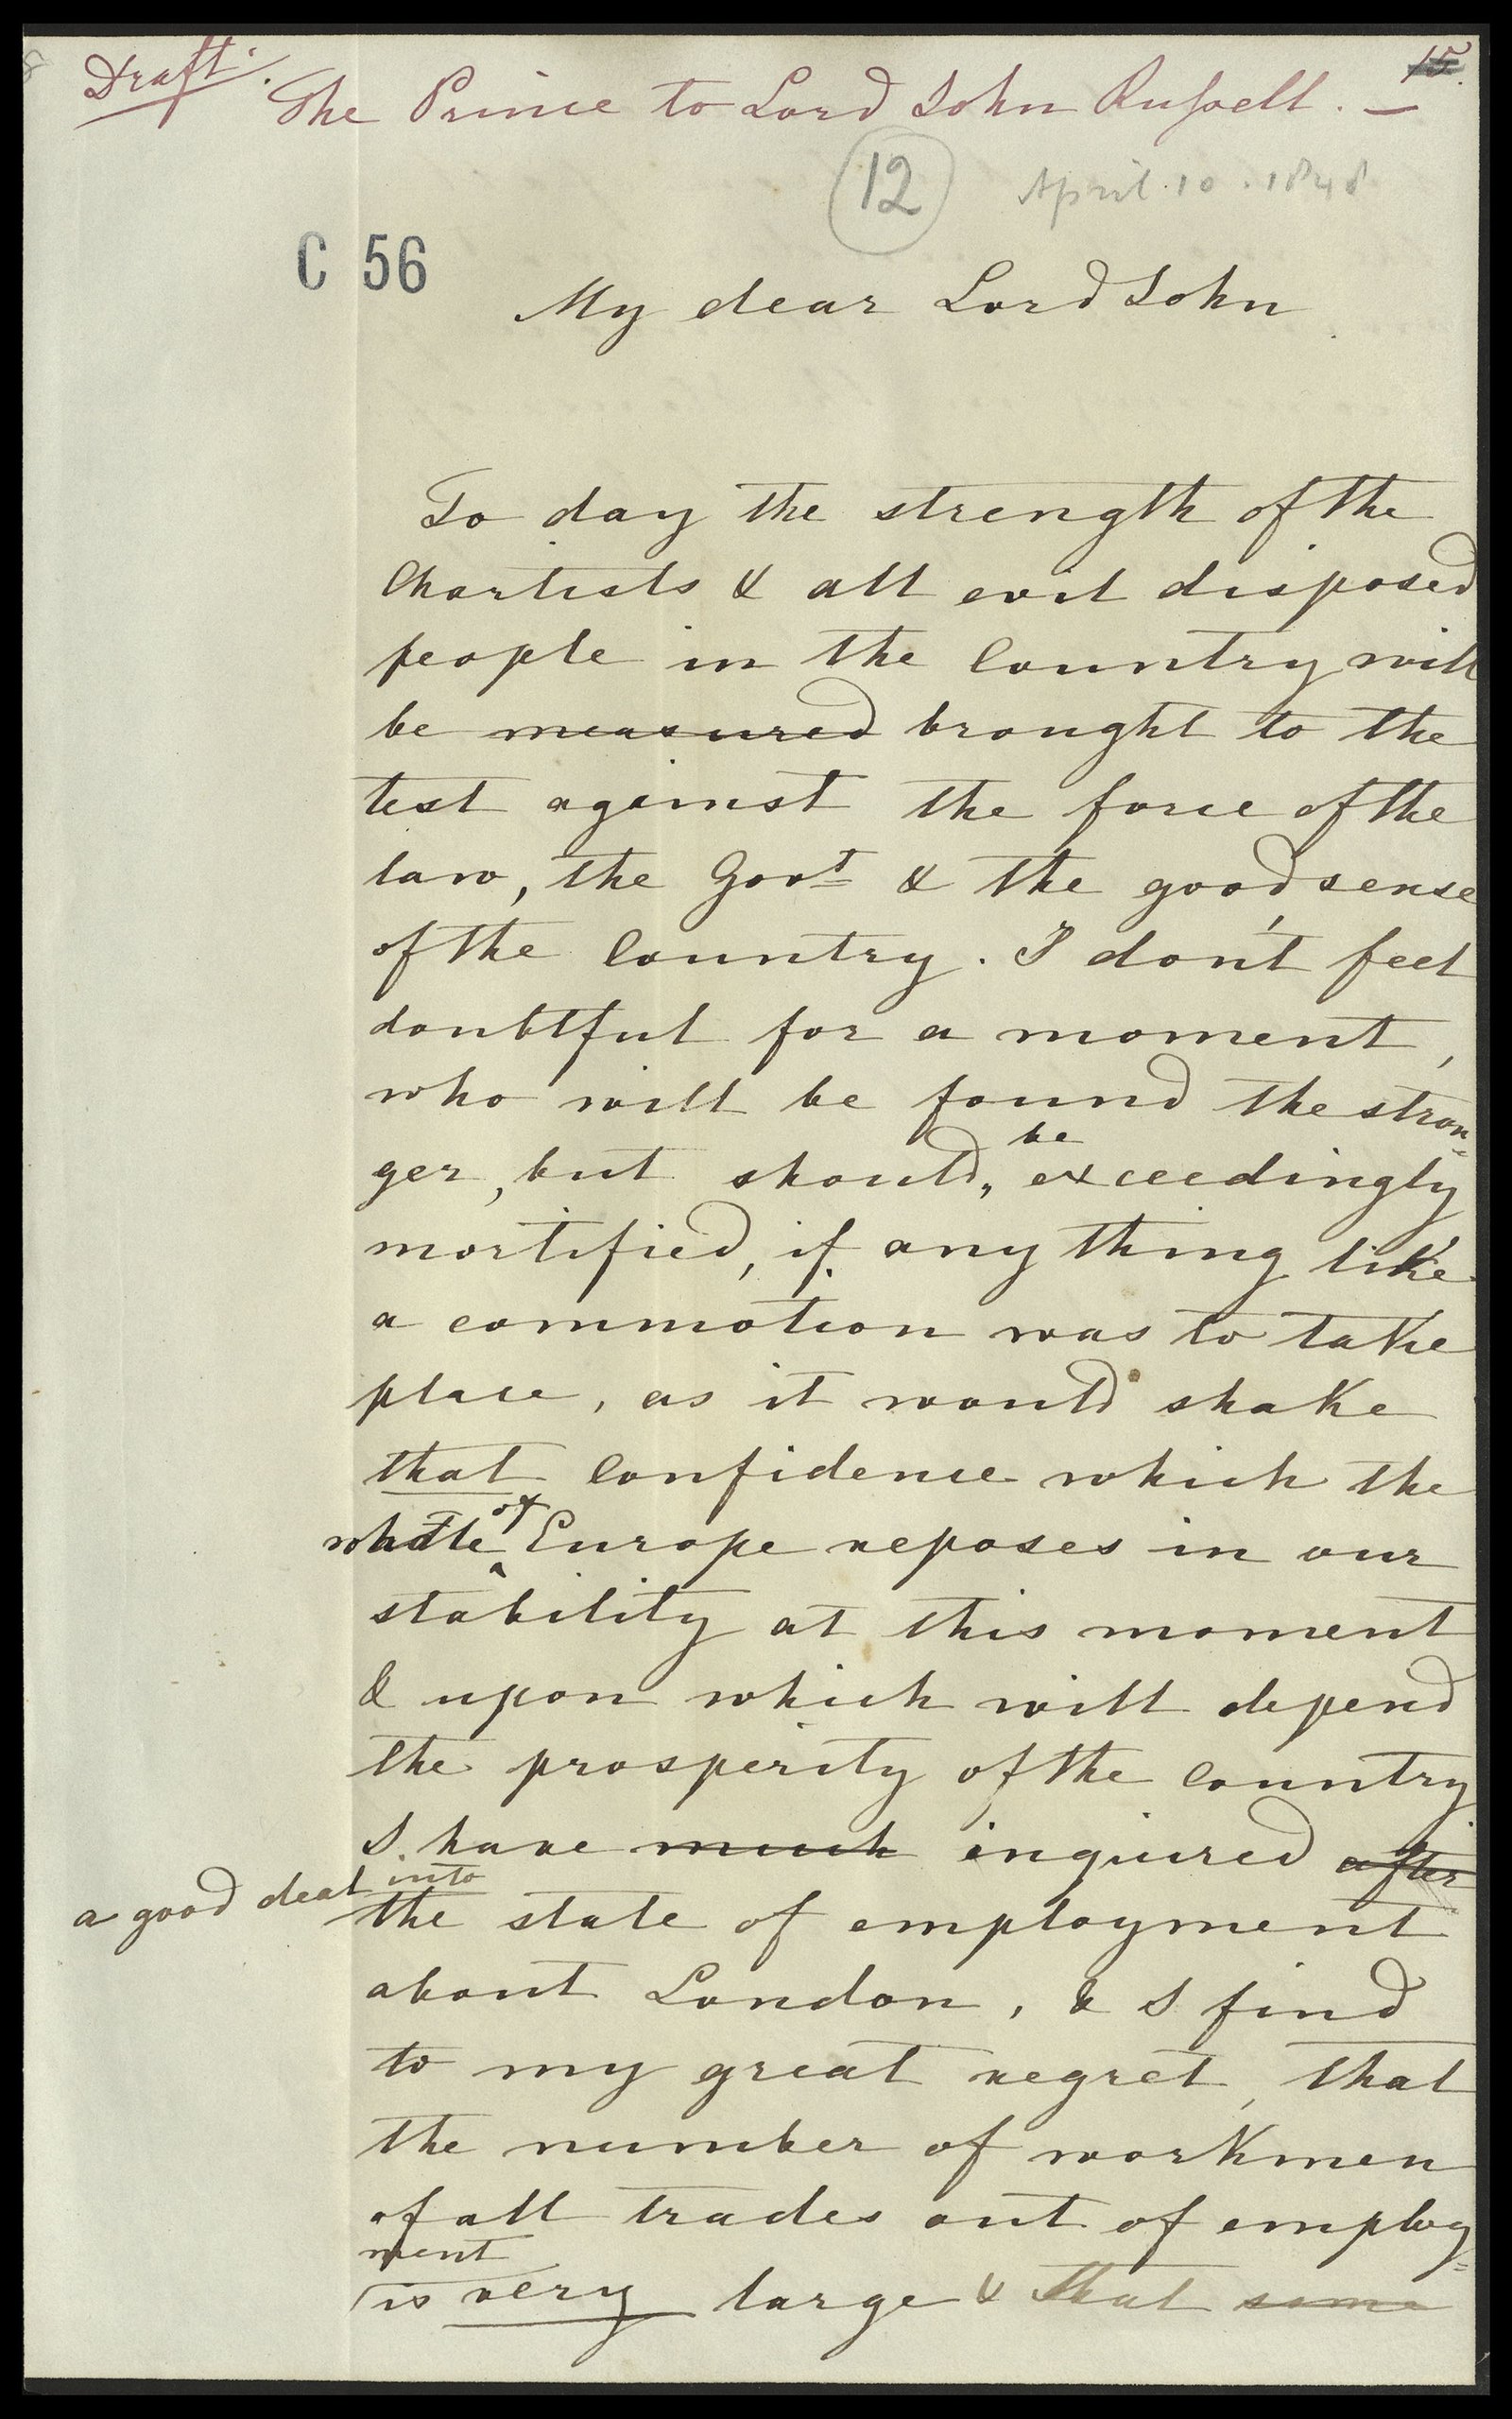 Draft.
15.
The Prince to Lord John Russell. —
12
April. 10. 1848
C 56
My dear Lord John
To day the strength of the
Chartists & all evil disposed
people in the Country will
be measured brought to the
test against the force of the
law, the Govt & the good sense
of the Country. I don't feel
doubtful for a moment,
who will be found the stron=
be
ger, but should, exceedingly
mortified, if anything like
a commotion was to take
place, as it would shake
that Confidence which the
of
whole Europe reposes in our
stability at this moment
& upon which will depend
the prosperity of the Country
I have much inquired after
a good deal into
the state of employment
about London, & I find
to my great regret, that
the number of workmen
of all trades out of employ=
ment
is very large & that some